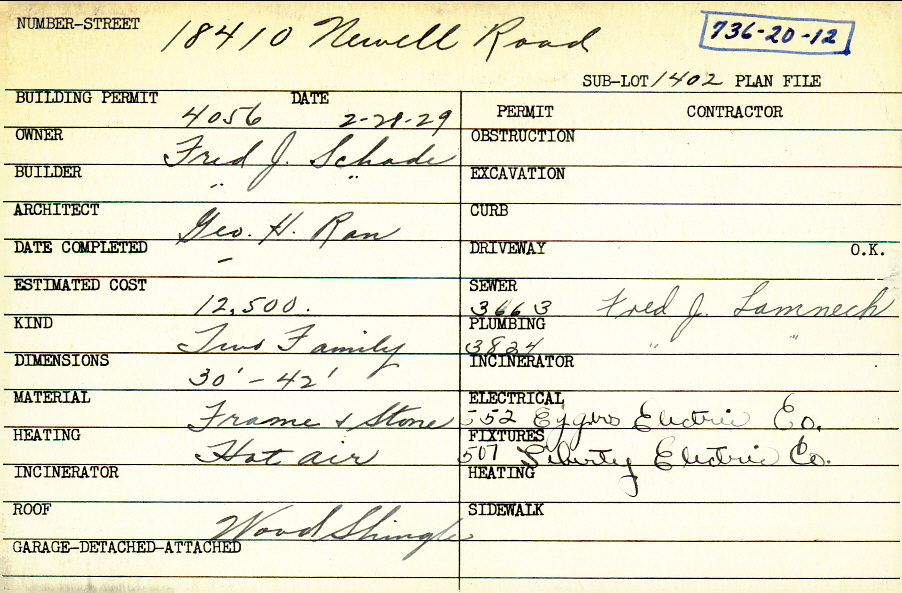 NUMBER-STREET 18410 Newell Road 736-20-12
SUB-LOT 1402 PLAN FILE
BUILDING PERMIT 4056 DATE 2-28-29
OWNER Fred J. Schade
BUILDER " "
ARCHITECT Geo. H. Rau
DATE COMPLETED -
ESTIMATED COST 12,500.
KIND Two Family
DIMENSIONS 30' - 42'
MATERIAL Frame & Stone
HEATING Hot air
INCINERATOR
ROOF Wood Shingle
GARAGE-DETACHED-ATTACHED
PERMIT CONTRACTOR
OBSTRUCTION
EXCAVATION
CURB
DRIVEWAY O.K.
SEWER 3663 Fred J. Lamneck
PLUMBING 3824 " "
INCINERATOR
ELECTRICAL 552 Eggers Electric Co.
FIXTURES 507 Liberty Electric Co.
HEATING
SIDEWALK